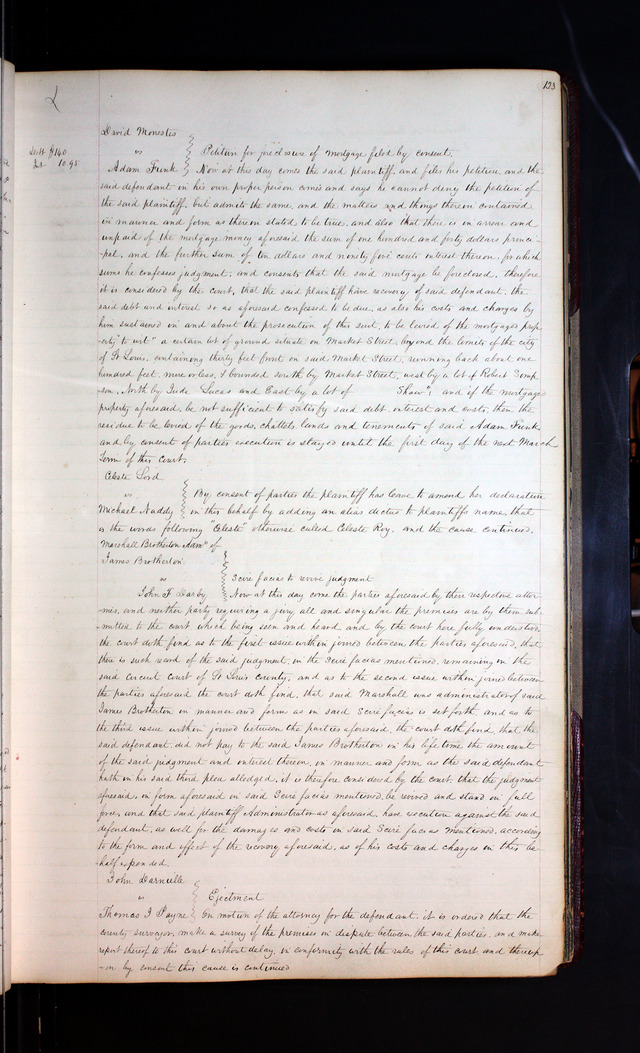 123
David Monestes
Debt $140
Int 10.95
vs } Petition for foreclosure of mortgage filed by consent.
Adam Funk } Now at this day comes the said plaintiff, and files his petition, and the
said defendant in his own proper person comes and says he cannot deny the petition of
the said plaintiff, but admits the same, and the matters and things therein contained
in manner and form as therein stated to be true, and also that there is in arrear and
unpaid of the mortgage money aforesaid the sum of one hundred and forty dollars princi-
-pal, and the further sum of ten dollars and ninety five cents interest thereon, for which
sums he confesses judgment, and consents that the said mortgage be foreclosed, therefore
it is considered by the court, that the said plaintiff have recovery of said defendant, the
said debt and interest so as aforesaid confessed to be due, as also his costs and charges by
him sustained in and about the prosecution of this suit, to be levied of the mortgaged prop
-erty "to wit" a certain lot of ground situate on Market Street, beyond the limits of the city
of St Louis, containing thirty feet front on said Market Street, running back about one
hundred feet, more or less, & bounded south by Market Street, west by a lot of Robert Simp
-son, North by Jude Lucas and East by a lot of Shaw", and if the mortgage
property aforesaid, be not sufficient to satisfy said debt, interest and costs, then the
residue to be levied of the goods, chattels, lands and tenements of said Adam Funk
and by consent of parties execution is stayed until the first day of the next March
Term of this Court.
Celeste Lord
vs } By consent of parties the plaintiff has leave to amend her declaration
Michael Naddy } in this behalf by adding an alias dictus to plaintiffs name, that
is the words following "Celeste" otherwise called Celeste Roy, and the cause continued.
Marshall Brotherton Admr of
James Brotherton
vs } Scire facias to revive judgment
John F Darby } Now at this day come the parties aforesaid by their respective attor
-nies, and neither party requiring a jury, all and singular the premises are by them sub
-mitted to the court which being seen and heard and by the court here fully understood,
the court doth find as to the first issue within joined between the parties aforesaid, that
there is such record of the said judgment, in the Scire facias mentioned, remaining in the
said circuit court of St Louis county, and as to the second issue within joined between
the parties aforesaid the court doth find, that said Marshall was administrator of said
James Brotherton in manner and form as in said Scire facias is set forth and as to
the third issue within joined between the parties aforesaid, the court doth find, that the
said defendant did not pay to the said James Brotherton in his life time the amount
of the said judgment and interest thereon, in manner and form as the said defendant
hath in his said third plea alledged, it is therefore considered by the court, that the judgment
aforesaid, in form aforesaid in said Scire facias mentioned, be revived and stand in full
force, and that said plaintiff Administrator as aforesaid, have execution against the said
defendant, as well for the damages and costs in said Scire facias mentioned, according
to the form and effect of the recovery aforesaid, as of his costs and charges in this be
-half expended.
John Darneille
vs } Ejectment
Thomas J Payne } On motion of the attorney for the defendant, it is ordered that the
county surveyor, make a survey of the premises in dispute between the said parties, and make
report thereof to this court without delay, in conformity with the rules of this court and thereup
-on by consent this cause is continued